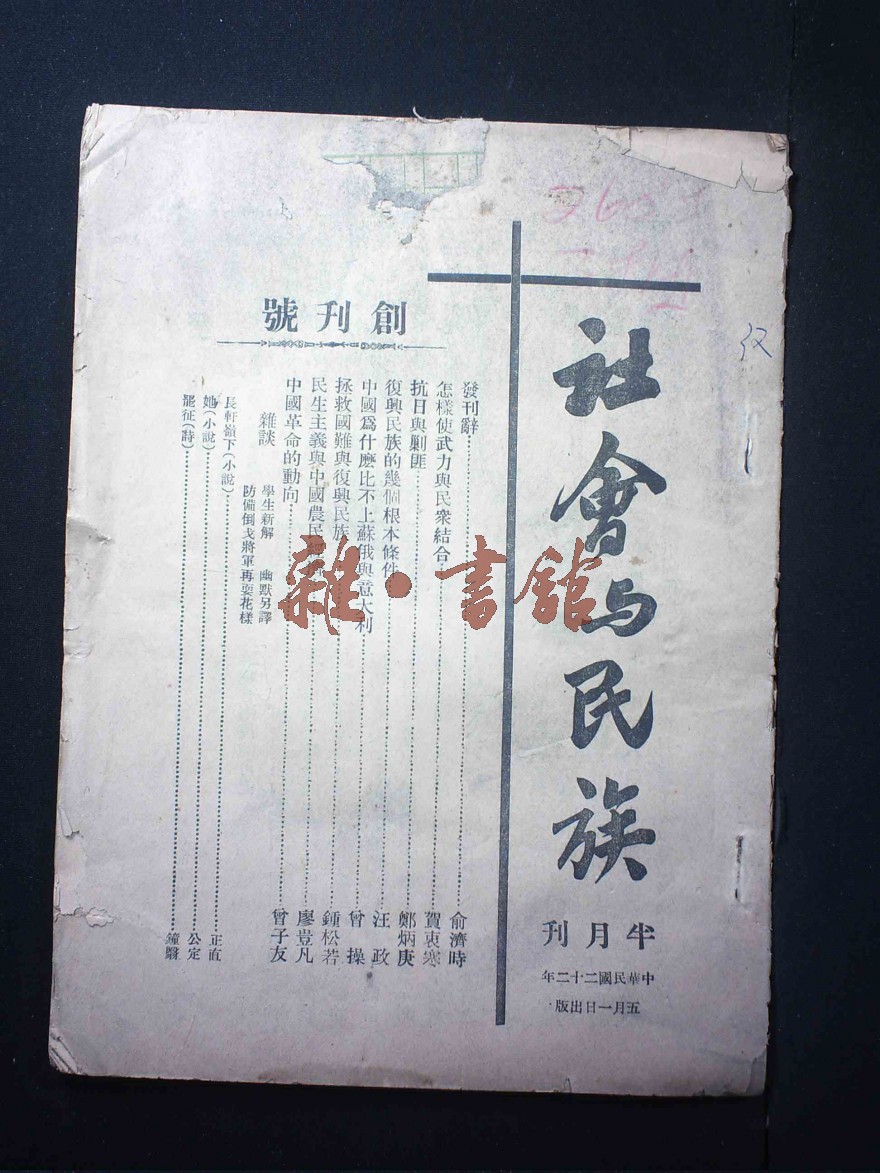 社會与民族
半月刊
中華民國二十二年
五月一日出版
創刊號
發刊辭 俞濟時
怎樣使武力與民衆結合 賀衷寒
抗日與剿匪 鄭炳庚
復興民族的幾個根本條件 汪政
中國爲什麽比不上蘇俄與意大利 曾操
拯救國難與復興民族 鍾松若
民生主義與中國農民經 廖豈凡
中國革命的動向 曾子友
雜談
學生新解 幽默另譯
防備倒戈將軍再耍花樣
長軒嶺下(小說) 正直
她(小說) 公定
罷征(詩) 鐘翳
雜·書館